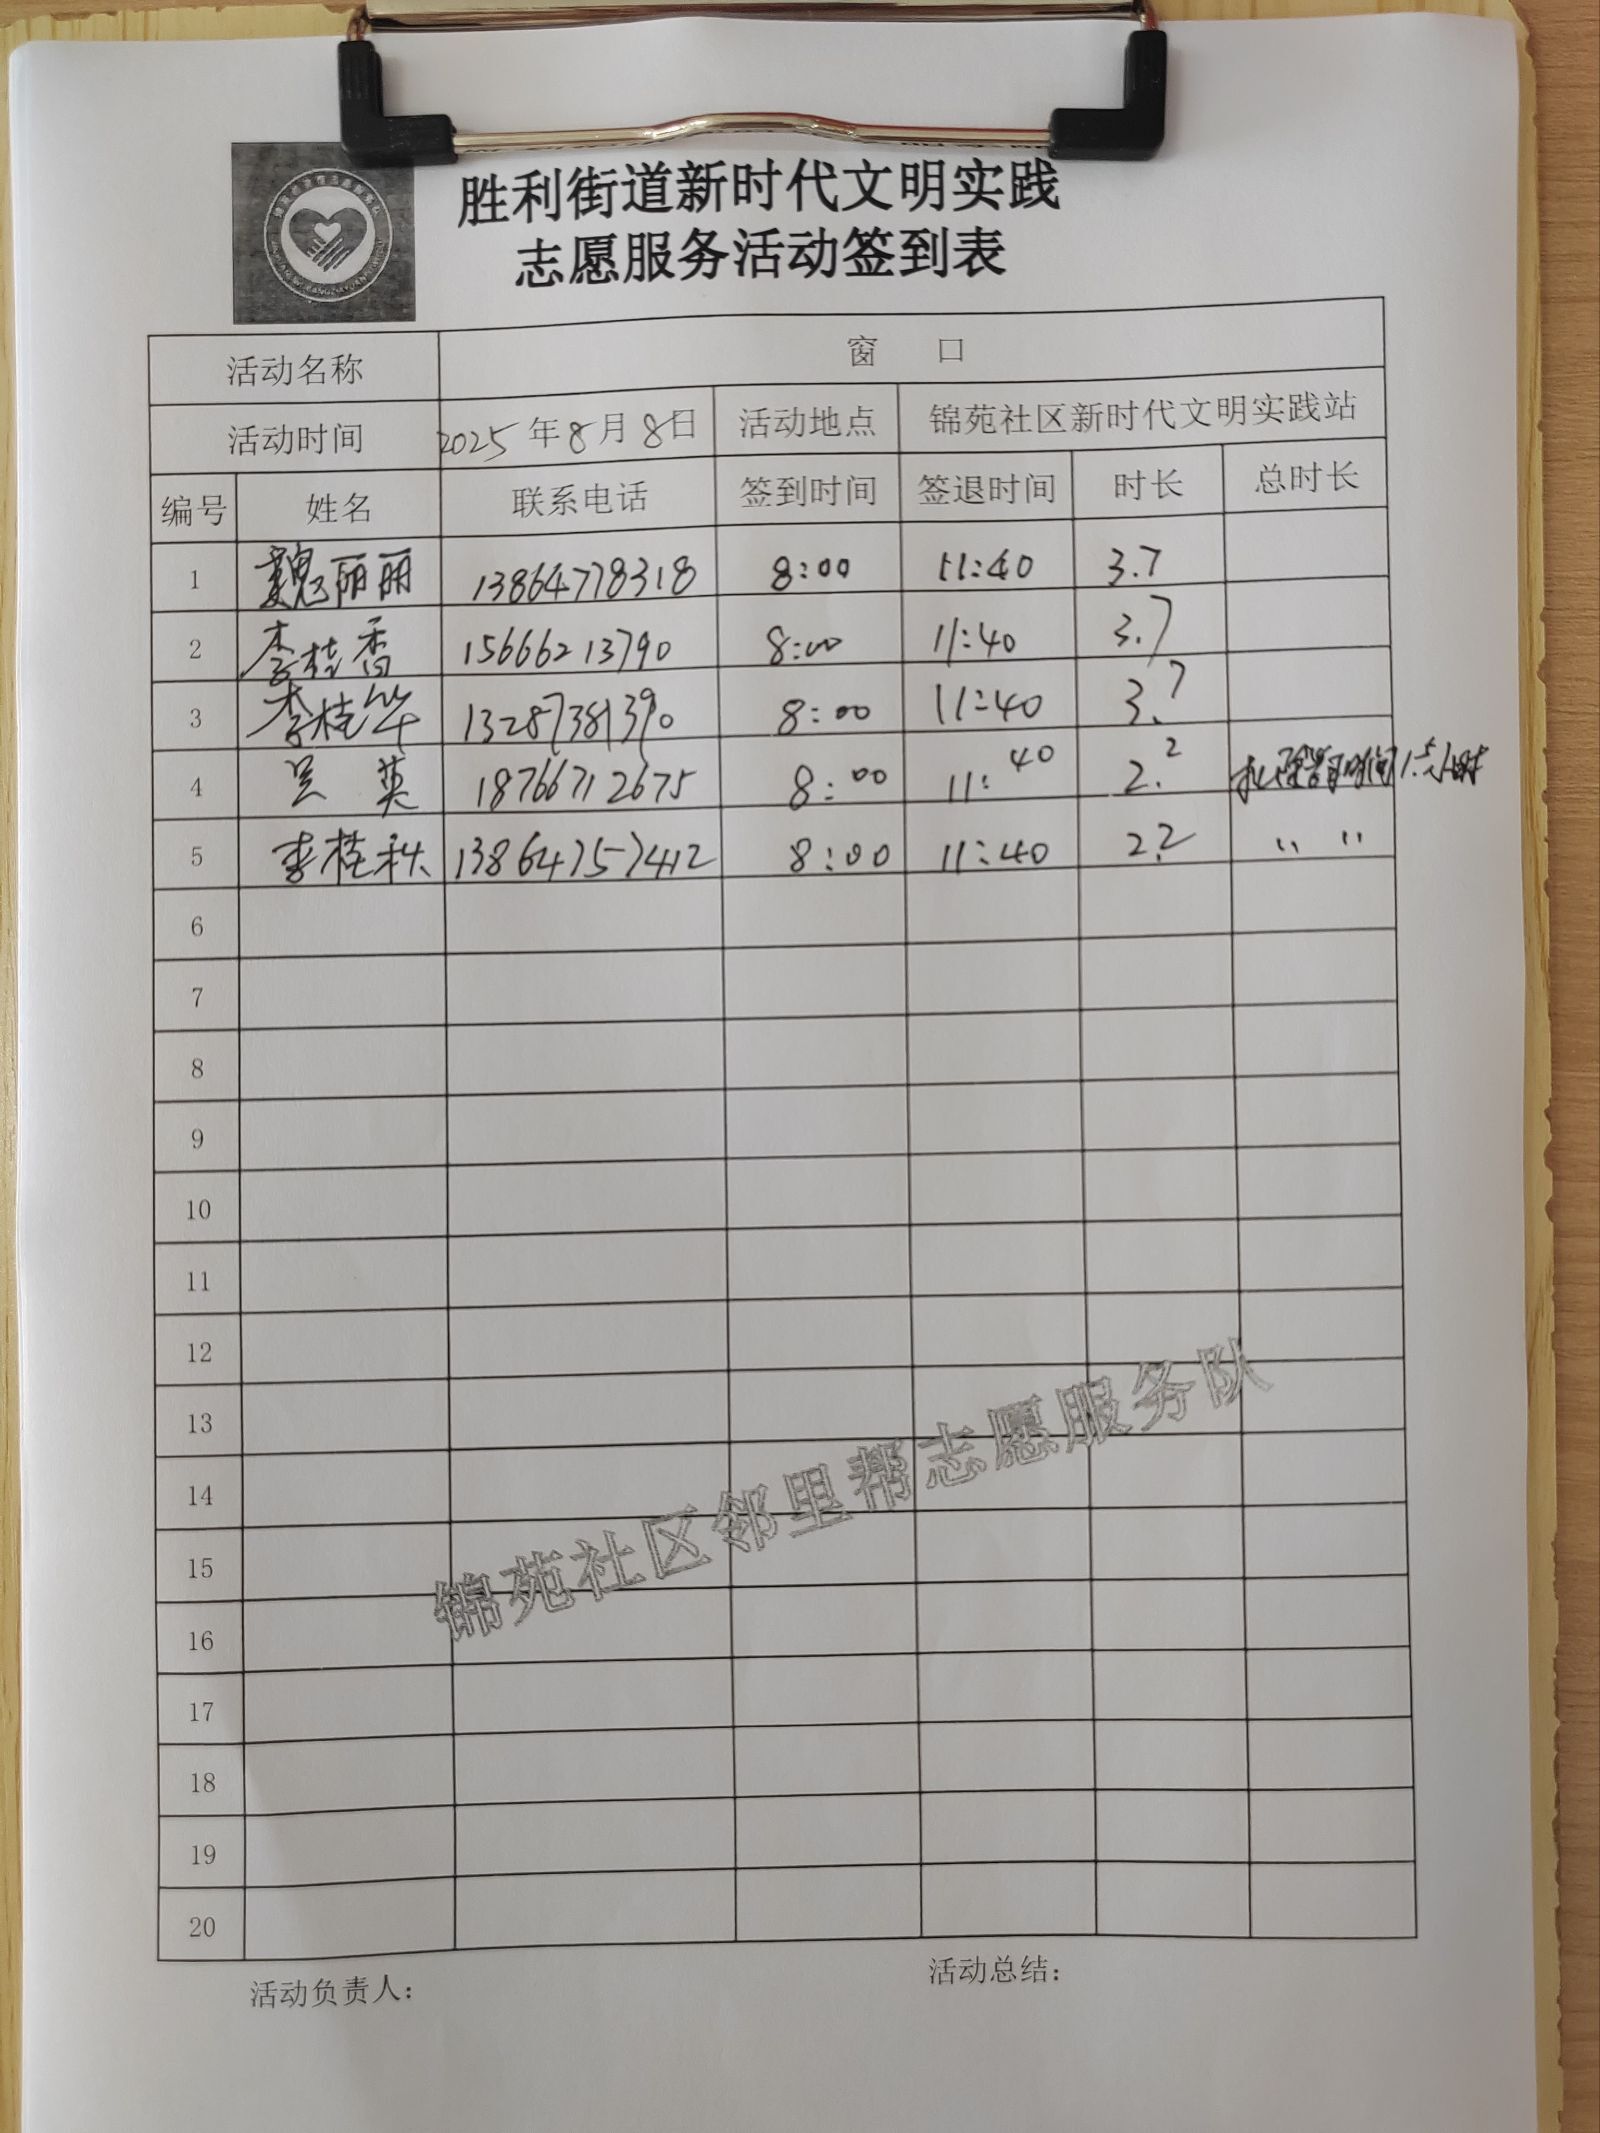 胜利街道新时代文明实践
志愿服务活动签到表
活动名称 窗 口
活动时间 2025年8月8日 活动地点 锦苑社区新时代文明实践站
编号 姓名 联系电话 签到时间 签退时间 时长 总时长
1 魏丽丽 13864778318 8:00 11:40 3.7
2 李桂香 15666213790 8:00 11:40 3.7
3 李桂华 13287381390 8:00 11:40 3.7
4 吴 英 18766712675 8:00 11:40 2.2 扣除 时间1.5小时
5 李桂秋 13864757412 8:00 11:40 2.2 " "
6
7
8
9
10
11
12
13
14
15
16
17
18
19
20
锦苑社区邻里帮志愿服务队
活动负责人: 活动总结: